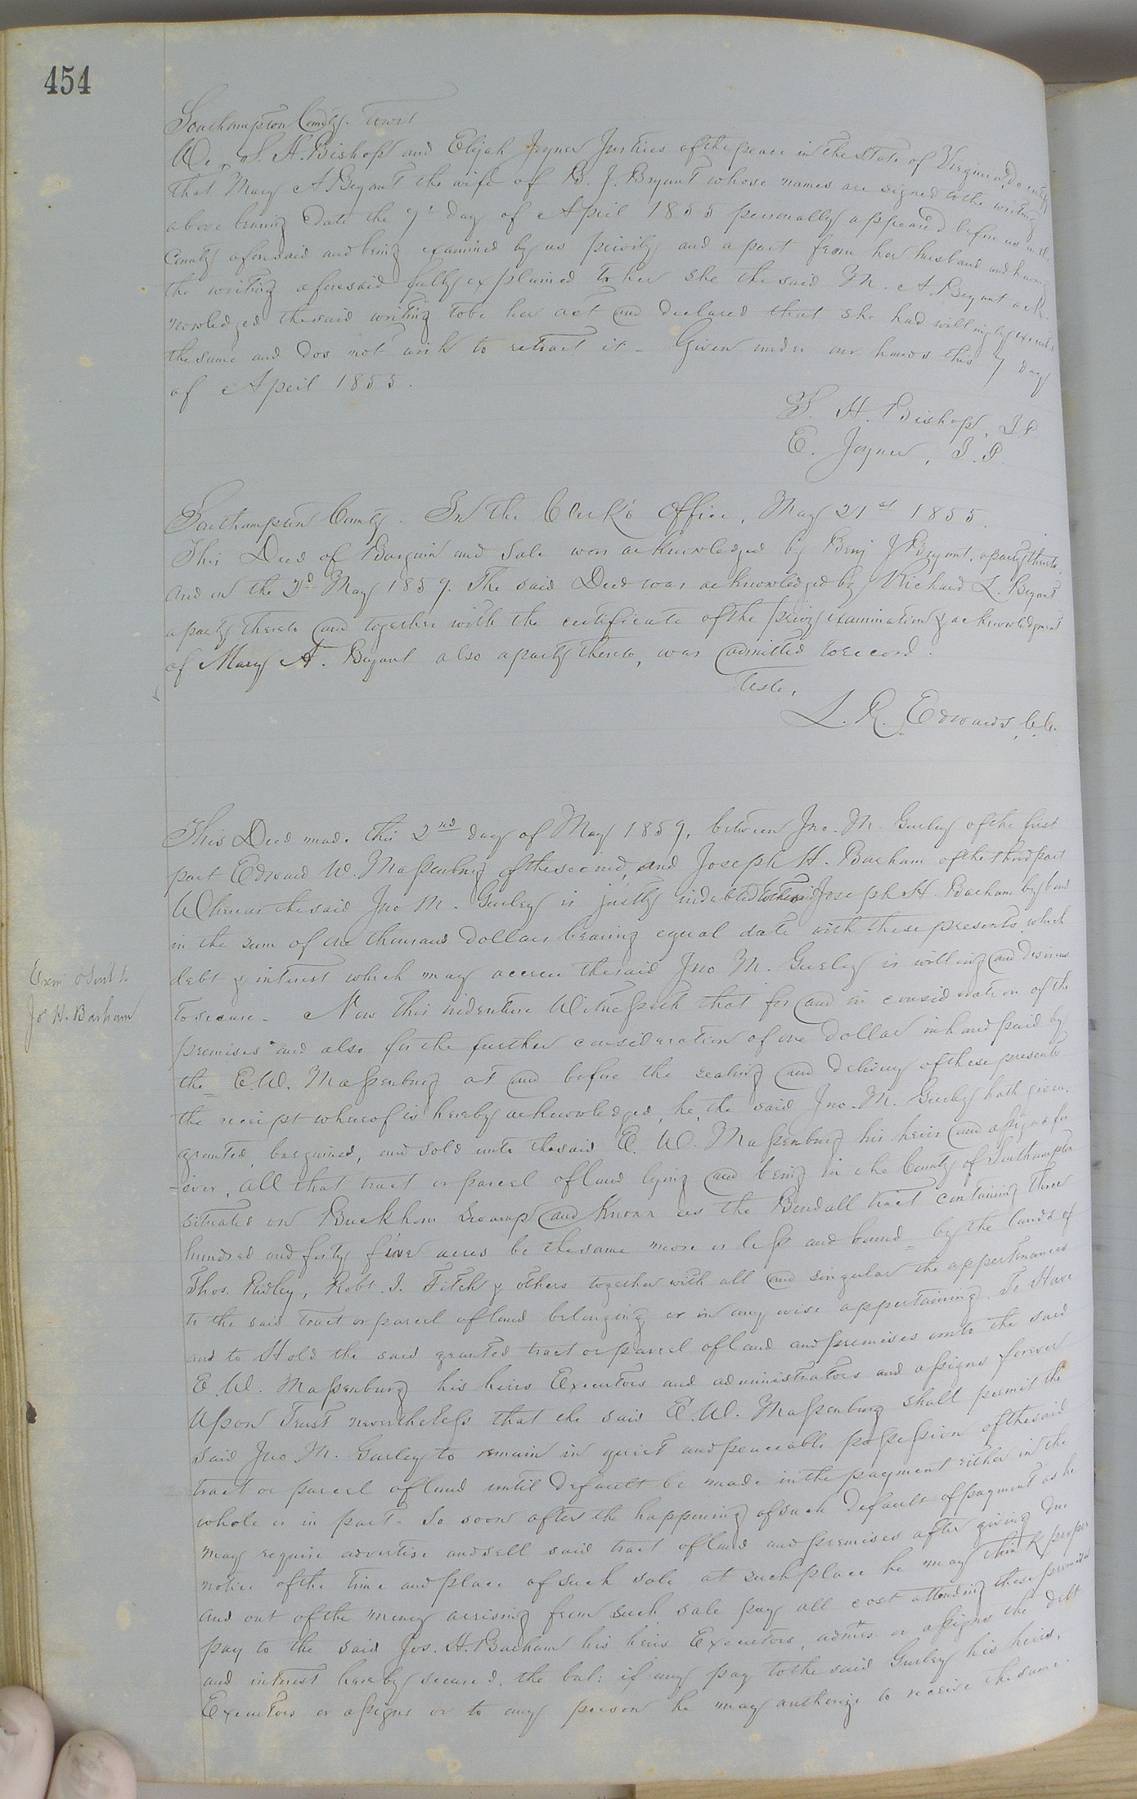 454
Southampton County. towit
We, S. H. Bishop and Elijah Joyner Justices of the peace in the State of Virginia, Do certify
that Mary A Bryant the wife of B. J. Bryant whose names are signed to the writing
above bearing Date the 7th day of April 1855 personally appeared before us in the
County aforesaid and being examined by us privily and apart from her husband and having
the writing aforesaid fully explained to her she the said M. A. Bryant ack
nowledged the said writing to be her act and declared that she had willingly executed
the same and dos not wish to retract it - Given under our hands this 7 day
of April 1855.
S. H. Bishop, J.P.
E. Joyner, J.P.
Southampton County. In the Clerk's Office, May 21st 1855.
This Deed of Bargain and Sale was acknowledged by Benj J Bryant, a party thereto,
and on the 2d May 1859. The said Deed was acknowledged by Richard L. Bryant
a party thereto and together with the certificate of the privy examination & acknowledgment
of Mary A. Bryant also a party thereto, was admitted to record.
Teste,
L. R. Edwards, C.C.
This Deed made this 2nd day of May 1859, between Jno. M. Gurley of the first
part Edward W. Massenburg of the second, and Joseph H. Barham of the third part
Whereas the said Jno M. Gurley is justly indebted to the said Joseph H. Barham by bond
in the sum of one thousand dollars bearing equal date with these presents, which
debt & interest which may accrue the said Jno M. Gurley is willing and desirous
to secure - Now this indenture Witnesseth that for and in consideration of the
Jos H. Barham
premises and also for the further consideration of one dollar in hand paid by
the E. W. Massenburg at and before the sealing and delivery of these presents
the receipt whereof is hereby acknowledged, he, the said Jno. M. Gurley hath given,
granted, bargained, and sold unto the said E. W. Massenburg his heirs and assigns for
-ever, all that tract or parcel of land lying and being in the County of Southampton
situated on Buckhorn Swamp and known as the Bendall tract containing three
hundred and forty five acres be the same more or less and bound by the lands of
Thos. Ridley, Robt. I. Fitch & others together with all and singular the appertenances
to the said tract or parcel of land belonging or in any wise appertaining. To Have
and to Hold the said granted tract or parcel of land and premises unto the said
E. W. Massenburg his heirs Executors and administrators and assigns forever
Upon Trust nevertheless that the said E. W. Massenburg shall permit the
said Jno M. Gurley to remain in quiet and peaceable possession of the said
tract or parcel of land until default be made in the payment either in the
whole or in part. So soon after the happening of such default of payment as he
may require advertise and sell said tract of land and premises after giving due
notice of the time and place of such sale at such place he may think proper
and out of the money arrising from such sale pay all cost attending these premises
pay to the said Jos. H. Barham his heirs Executors, admtrs. or assigns the debt
and interest hereby secured, the bal: if any pay to the said Gurley his heirs,
Executors or assigns or to any person he may authorize to receive the same.